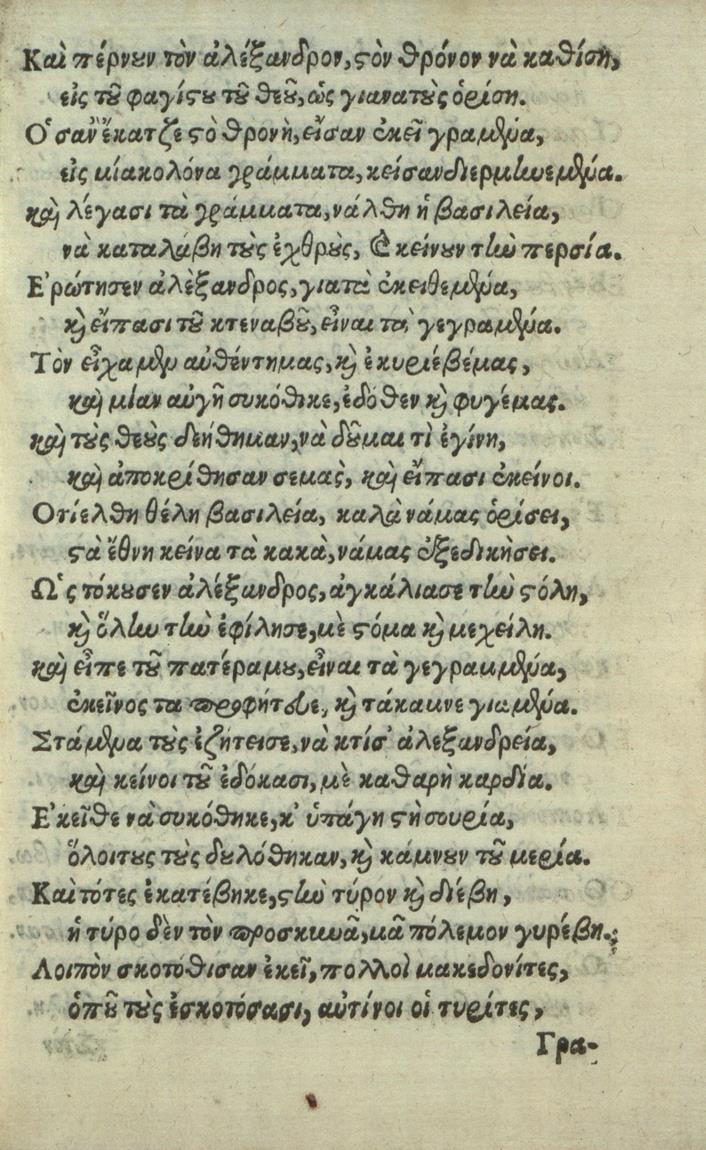 Καὶ πέρνουν τὸν ἀλέξανδρον, στὸν θρόνον νὰ καθίση,
εἰς τοῦ φαγίστου τοῦ θεοῦ, ὡς γιανατοὺς ὁρίση.
Ὁσὰν ἔκατζε στὸ θρονὴ, εἶσαν ἐκεῖ γραμμένα,
εἰς μίακολόνα γράμματα, κείσανδιερμηνεμένα.
καὶ λέγασι τὰ γράμματα, νάλθη ἡ βασιλεία,
νὰ καταλάβη τοὺς ἐχθροὺς, ἐκείνουν τὴν περσία.
Ἐρώτησεν ἀλὲξανδρος, γιατὰ ἐκειθεμένα,
καὶ εἴπασι τοῦ κτεναβοῦ, εἶναι τὰ γεγραμμένα.
Τὸν εἶχαμεν αὐθέντημας, καὶ ἐκυριέβέμας,
καὶ μίαν αὐγῆ συκόθικε, ἐδόθεν καὶ φυγέμας.
καὶ τοὺς θεοὺς δεήθημαν, νὰ δοῦμαι τὶ ἐγίνη,
καὶ ἀποκρίθησαν σεμᾶς, καὶ εἴπασι ἐκείνοι.
Οτίελθη θέλη βασιλεία, καλὰ νάμας ὁρίσει,
στὰ ἔθνη κείνα τὰ κακὰ, νάμας ἐξεδικήσει.
Ὡς τόκουσεν ἀλέξανδρος, ἀγκάλιασε τὴν στόλη,
καὶ ὅλην τὴν ἐφίλησε, μὲ στόμα καὶ μεχείλη.
καὶ εἶπε τοῦ πατέραμου, εἶναι τὰ γεγραμμένα,
ἐκεῖνος τα προφήτευε, καὶ τάκαμνε γιαμένα.
Στάμενα τοὺς ἐζήτεισε, νὰ κτίσ' ἀλεξανδρεία,
καὶ κείνοι τοῦ ἐδόκασι, μὲ καθαρὴ καρδία.
Ἐκεῖθε νὰ συκόθηκε, κ' ὑπάγη στὴ σουρία,
ὅλοιτους τοὺς δουλόθηκαν, καὶ κάμνουν τοῦ μερία.
Καὶ τότες ἐκατέβηκε, στὴν τύρον καὶ διέβη,
ἡ τύρο δὲν τὸν προσκυνᾶ, μᾶ πόλεμον γυρέβη.
Λοιπὸν σκοτόθισαν ἐκεῖ, πολλοὶ μακεδονίτες,
ὁποῦ τοὺς ἐσκοτόσασι, αὐτίνοι οἱ τυρίτες,
Γρα-